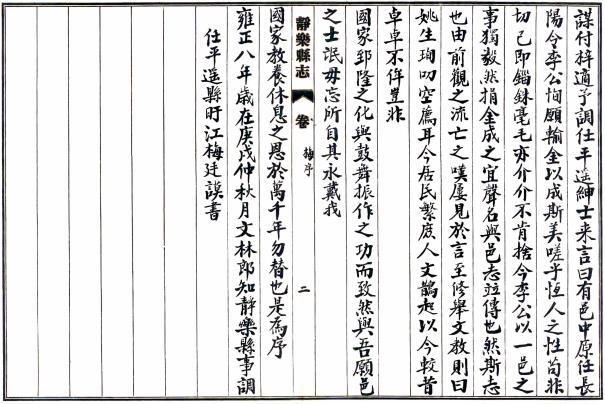 謀付梓適予調任平遥紳士来言曰有邑中原任長
陽令李公恂願輸金以成斯美嗟乎恒人之性苟非
切己即錙銖毫毛亦介介不肯捨今李公以一邑之
事獨毅然捐金成之宜聲名與邑志竝傳也然斯志
也由前觀之流亡之嘆屢見於言至修舉文教則曰
姚生珣叨空薦耳今居民繁庶人文鵲起以今較昔
卓卓不侔豈非
國家郅隆之化與鼓舞振作之功而致然與吾願邑
之士氓毋忘所自其永戴我
靜樂縣志 卷 梅序 二
國家教養休息之恩於萬千年勿替也是為序
雍正八年歲在庚戌仲秋月文林郎知靜樂縣事調
仕平遥縣盱江梅廷謨書